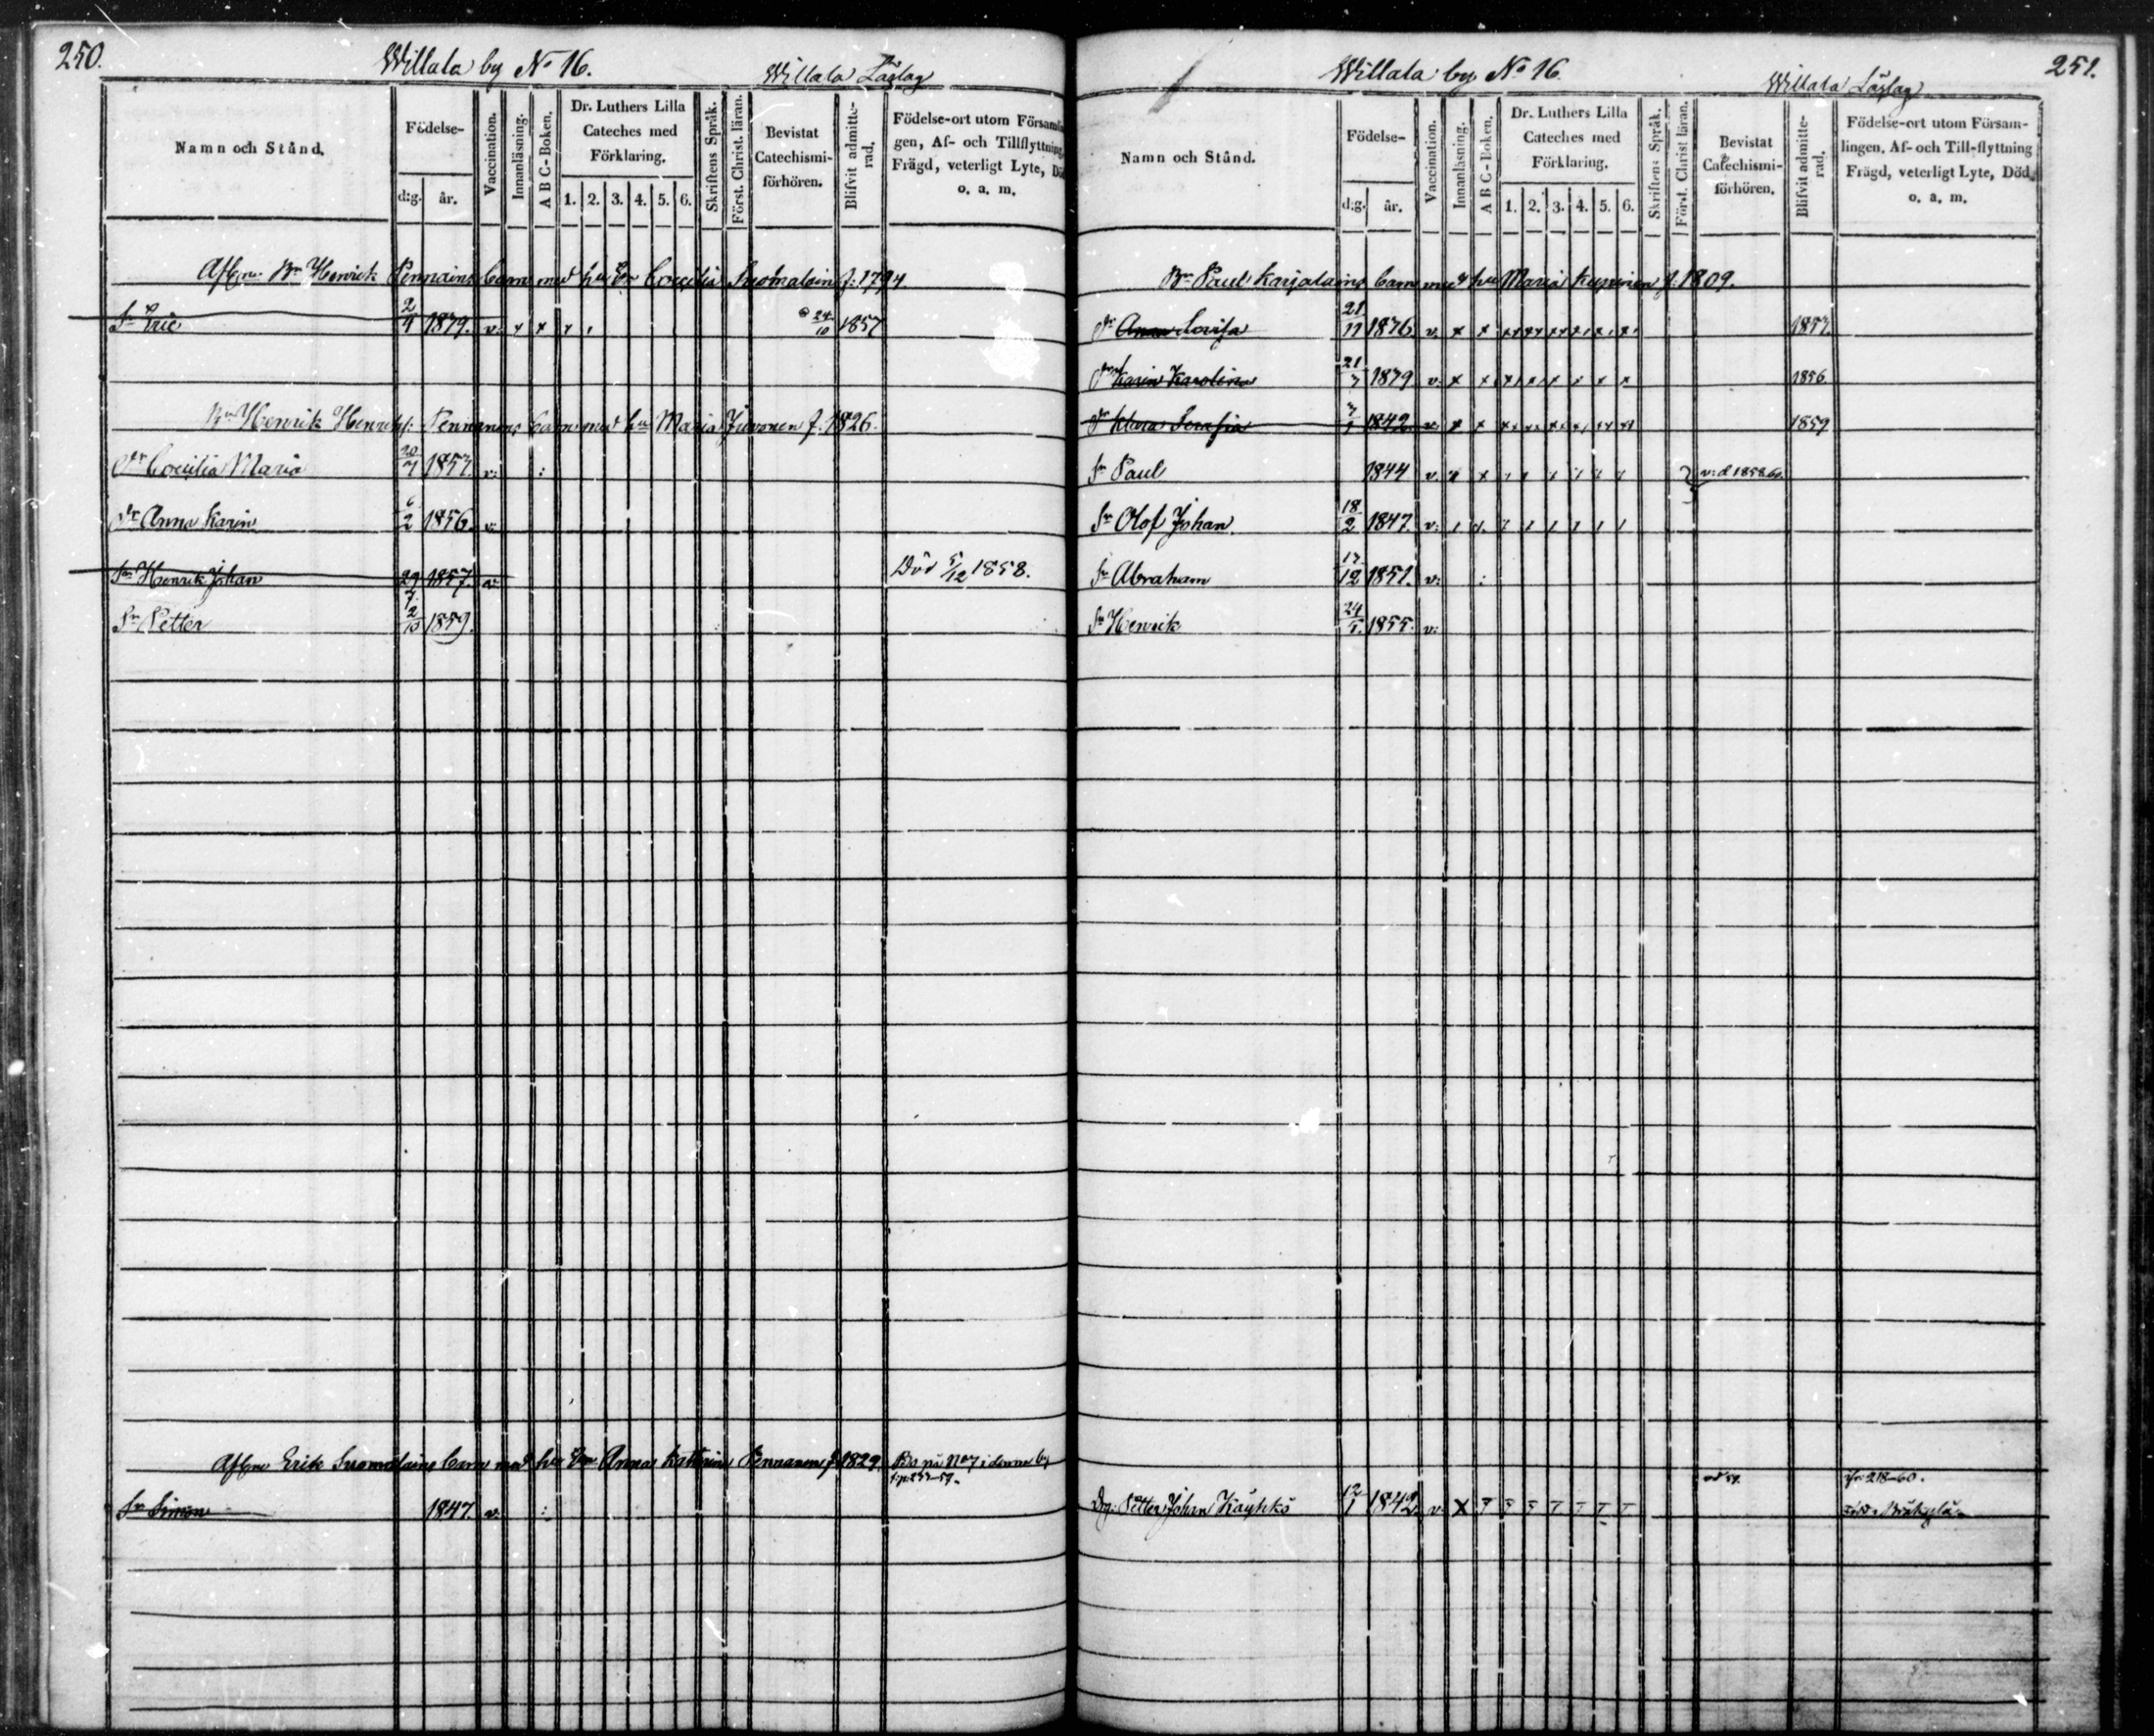 250.
Willala by No 16.
Willala Läslag
Namn och Stånd.
Födelse-
d:g. år.
Vaccination.
Innanläsning.
A B C-Boken.
Dr. Luthers Lilla
Cateches med
Förklaring.
1. 2. 3. 4. 5. 6.
Skriftens Språk.
Först. Christ. läran.
Bevistat
Catechismi-
förhören.
Blifvit admitte-
rad.
Födelse-ort utom Försam
gen, Af- och Tillflyttning,
Frägd, veterligt Lyte, Dö
o. a. m.
Afl. Bn Henrick Pennains barn med Coecilia Suomalain f. 1794
Sn Eric 2/4 1839. v. x x 24/10 1857
Bn Henrik Henriks: Pennanens barn med hu Maria Juvonen f. 1826.
Dr Coecilia Maria 20/7 1853. v:
Dr Anna Karin 6/2 1856. v:
Sn Henrik Johan 29/7 1857. v: Död 5/12 1858.
Sn Petter 2/10 1859.
Erik Suomalains barn med hu Anna Katarina Pennanen f. 1829. Bo på No 7 i denna by
Sn Simon 1847. v. :
251.
Willala by No 16
Willala Läslag
Namn och Stånd.
Födelse-
d:g. år.
Vaccination.
Innanläsning.
A B C-Boken.
Dr. Luthers Lilla
Cateches med
Förklaring.
1. 2. 3. 4. 5. 6.
Skriftens Språk.
Först. Christ läran.
Bevistat
Catechismi-
förhören.
Blifvit admitte-
rad.
Födelse-ort utom Försam-
lingen, Af- och Till-flyttning
Frägd, veterligt Lyte, Död,
o. a. m.
Bn Paul Karjalains barn med hu Maria Kupiainen f. 1809.
Dr Anna Lovisa 21/11 1836. v. x x 1857.
Dr Karin Karolina 21/7 1839 v. x x 1856
Dr Klara Serafia 1842 v. x x 1859
Sn Paul 1844 v. v: d 1858.60.
Sn Olof Johan. 18/2 1847. v:
Sn Abraham 17/12 1851. v: :
Sn Henrik 24/5 1855. v:
Drg: Petter Johan Käyhkö 12/1 1842. v. X T T T T T T T
fr: 218-60.